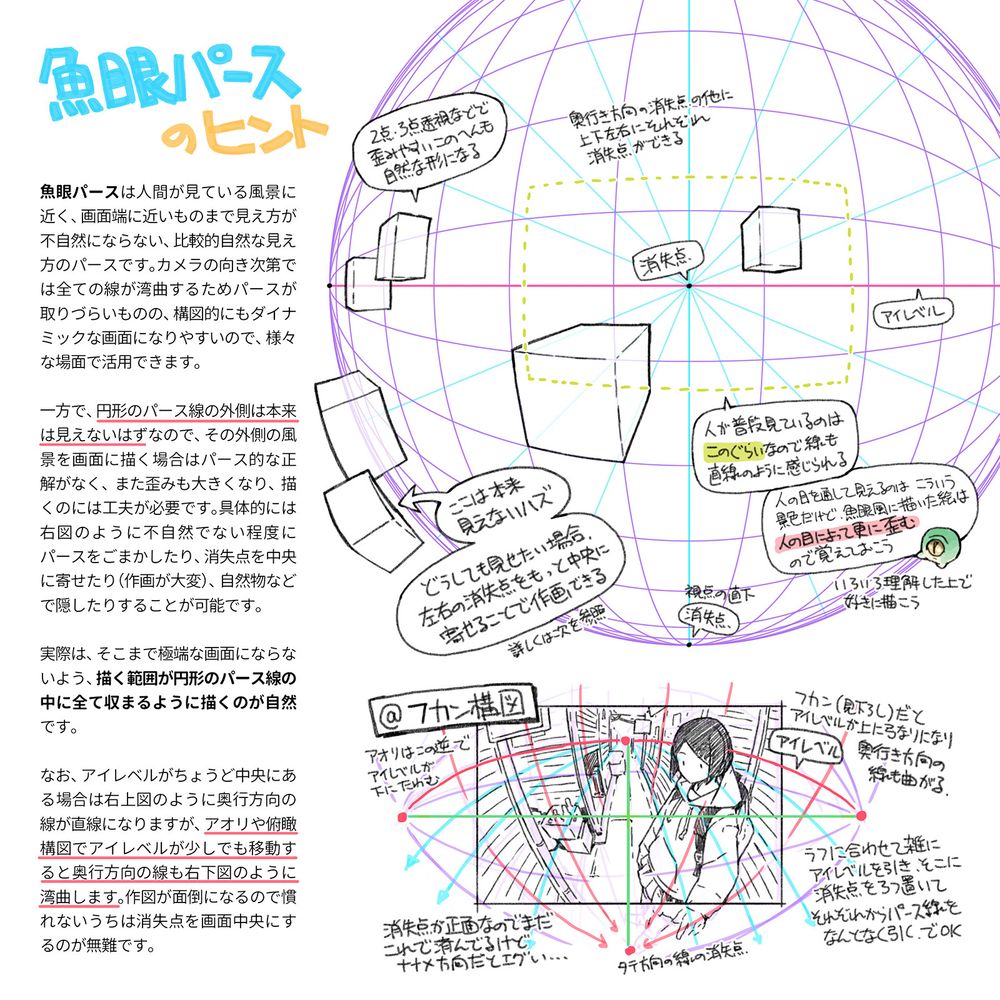 魚眼パース
のヒント
魚眼パースは人間が見ている風景に
近く、画面端に近いものまで見え方が
不自然にならない、比較的自然な見え
方のパースです。カメラの向き次第で
は全ての線が湾曲するためパースが
取りづらいものの、構図的にもダイナ
ミックな画面になりやすいので、様々
な場面で活用できます。
一方で、円形のパース線の外側は本来
は見えないはずなので、その外側の風
景を画面に描く場合はパース的な正
解がなく、また歪みも大きくなり、描
くのには工夫が必要です。具体的には
右図のように不自然でない程度に
パースをごまかしたり、消失点を中央
に寄せたり（作画が大変）、自然物など
で隠したりすることが可能です。
実際は、そこまで極端な画面にならな
いよう、描く範囲が円形のパース線の
中に全て収まるように描くのが自然
です。
なお、アイレベルがちょうど中央にあ
る場合は右上図のように奥行方向の
線が直線になりますが、アオリや俯瞰
構図でアイレベルが少しでも移動す
ると奥行方向の線も右下図のように
湾曲します。作図が面倒になるので慣
れないうちは消失点を画面中央にす
るのが無難です。
2点・3点透視などで
歪みやすいこのへんも
自然な形になる
奥行き方向の消失点の他に
上下左右にそれぞれ
消失点ができる
消失点
アイレベル
人が普段見ているのは
このぐらいなので線も
直線のように感じられる
ここは本来
見えないハズ
どうしても見せたい場合、
左右の消失点をもっと中央に
寄せることで作画できる
詳しくは次を参照
人の目を通して見えるのは こういう
景色だけど、魚眼図に描いた絵は
人の目によって更に歪む
ので覚えておこう
いろいろ理解した上で
好きに描こう
視点の直下
消失点
@フカン構図
アオリはこの逆で
アイレベルが
下にたわむ
アイレベル
フカン（見下ろし）だと
アイレベルが上に弓なりになり
奥行き方向の
線も曲がる
ラフに合わせて雑に
アイレベルを引き、そこに
消失点を3つ置いて
それぞれからパース線を
なんとなく引く、でOK
消失点が正面なのでまだ
これで済んでるけど
ナナメ方向だとエグい…
タテ方向の線の消失点